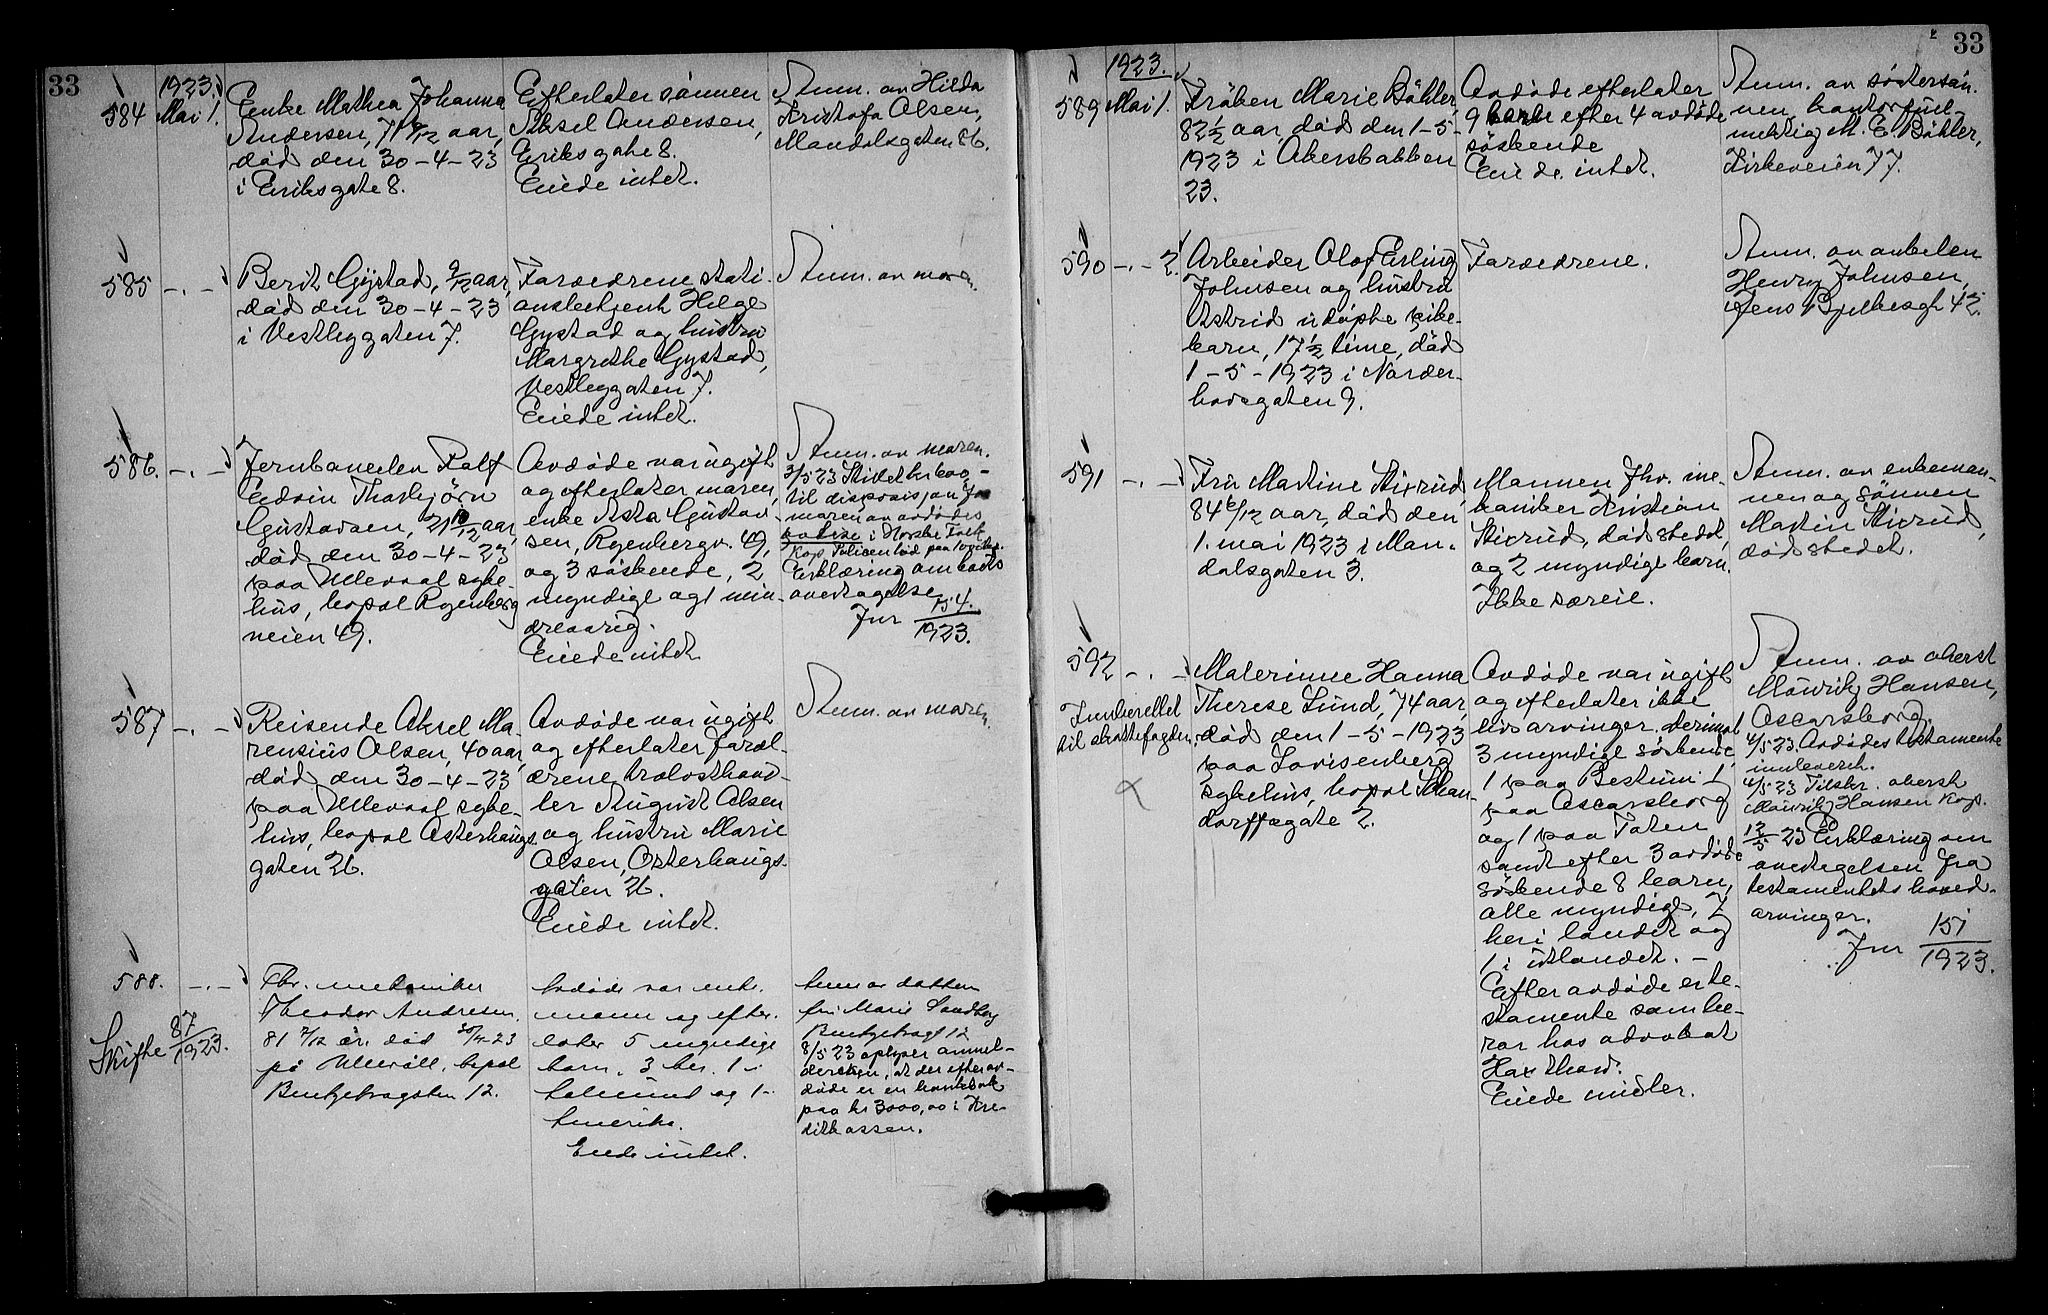 33
1923.
584 Mai 1.
Enke Mathea Johanna
Andersen, 71 9/12 aar,
död den 30-4-23
i Eriksgate 8.
Efterlater sönnen
Aksel Andersen,
Eriksgate 8.
Eiede intet.
Anm. av Hilda
Kristofa Olsen,
Mandalsgaten 86.
585 -.-
Berit Gystad, 9/12 aar,
död den 30-4-23
i Vestbygaten 7.
Foræidrene stati-
onsbetjent Helge
Gystad og hustru
Margrethe Gystad,
Vestbygaten 7.
Eiede intet.
Anm. av moren.
586. -.-
Jernbaneelev Ralf
Edvin Thorbjörn
Gustavsen, 21 10/12 aar,
död den 30-4-23
paa Ullevaal syke-
hus, bopæl Ryenberg
veien 49.
Avdöde var ugift
og efterlater moren,
enke Asta Gustav-
sen, Ryenbergv. 49,
og 3 söskende, 2
myndige og 1 min-
dreaarig.
Eiede intet
Anm. av moren.
3/5 23 Stillet kr 600,-
til disposisjon for
moren av avdödes
i Norske Folk
Erklæring om boets
overtagelse
Jnr 154./1923.
587 -.-
Reisende Aksel Ma-
rensius Olsen, 40 aar,
död den 30-4-23
paa Ullevaal syke-
hus, bopæl Osterhaugs-
gaten 26.
Avdöde var ugift
og efterlater foræl-
drene trælasthand-
ler August Olsen
og hustru Marie
Olsen, Osterhaugs-
gaten 26.
Eiede intet.
Anm. av moren.
588. -.-
Skifte 87/1923.
Fhv. mekaniker
Theodor Andresen,
81 7/12 år. död 30/4-23
på Ullevåll, bopæl
Bentsebrogaten 12.
Avdöde var enke-
mann og efter-
later 5 myndige
barn, 3 her. 1 i
og 1 i
Amerika.
Eiede intet.
Anm av datteren
fru Marie Sandberg
Bentsebrogt 12
8/5 23 oplyser anmel-
dersken, at der efter av-
döde er en bankbok
paa kr 3000,00 i Kre-
ditkassen.
33
1923.
589 Mai 1.
Fröken Marie Böhler
82 1/2 aar, död den 1-5-
1923 i Akersbakken
23.
Avdöde efterlater
9 barn efter 4 avdöde
söskende
Eiede intet.
Anm. av söstersön-
nen, kontorfuld-
mektig M. E. Böhler,
Kirkeveien 77.
590 -.- 2.
Arbeider Olaf Erling
Johnsen og hustru
Astrid udöpte pike-
barn, 17 1/2 time, död
1-5-1923 i Norder-
hovsgaten 9.
Foræidrene.
Anm. av onkelen
Henry Johnsen,
Jens Bjelkesgt 42.
591 -.-
Fru Martine Stixrud,
84 6/12 aar, död den
1. mai 1923 i Man-
dalsgaten 3.
Mannen fhv. me-
kaniker Kristian
Stixrud, dödstedet,
og 2 myndige barn.
Ikke særeie.
Anm. av enkeman-
nen og sönnen
Martin Stixrud,
dödstedet.
592 -.-
Innberettet
til skattefogden.
Malerinne Hanna
Therese Lund, 74 aar,
död den 1-5-1923
paa Lovisenberg
sykehus, bopæl Schan-
dorffsgate 2.
Avdöde var ugift
og efterlater ikke
livsarvinger, derimot
3 myndige söskende
1 paa Bestum. 1
paa Oscarsborg
og 1 paa Toten
samt efter 3 avdöde
söskende 8 barn,
alle myndige, 7
her i landet og
1 i utlandet. -
Efter avdöde er te-
stamente som be-
ror hos advokat
Haxthow.
Eiede midler.
Anm. av oberst
Hansen,
Oscarsborg.
4/5 23 Avdödes testamente
innlevert.
4/5 23 Tilskr. oberst
Hansen
12/5 23 Erklæring om
overtagelsen fra
testamentets hoved-
arvinger.
Jnr 151/1923.